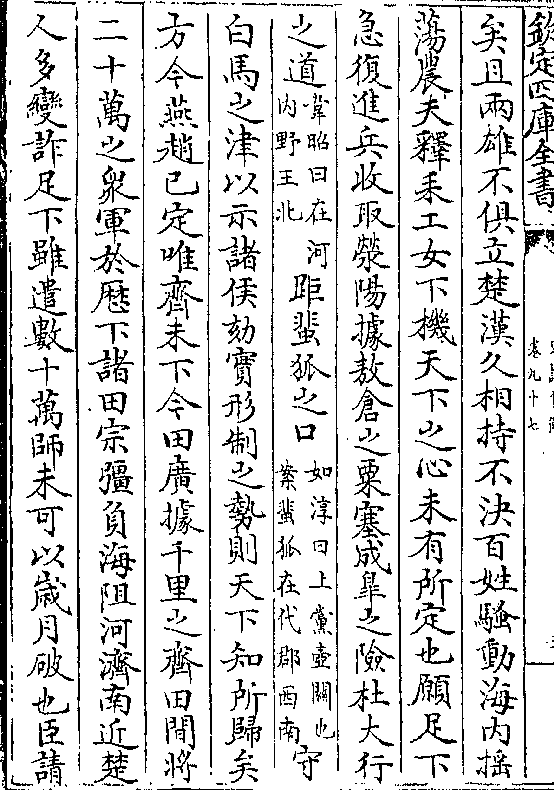 欽定四庫全書
卷九十七
矣且兩雄不俱立楚漢久相持不決百姓騷動海内揺
蕩農夫釋耒工女下機天下之心未有所定也願足下
急復進兵收取滎陽據敖倉之粟塞成臯之險杜大行
之道韋昭曰在河内野王北距蜚狐之口如淳曰上黨壺關也案蜚狐在代郡西南守
白馬之津以示諸侯劾實形制之勢則天下知所歸矣
方今燕趙已定唯齊未下今田廣據千里之齊田間將
二十萬之衆軍於厯下諸田宗彊負海阻河濟南近楚
人多變詐足下雖遣數十萬師未可以歲月破也臣請